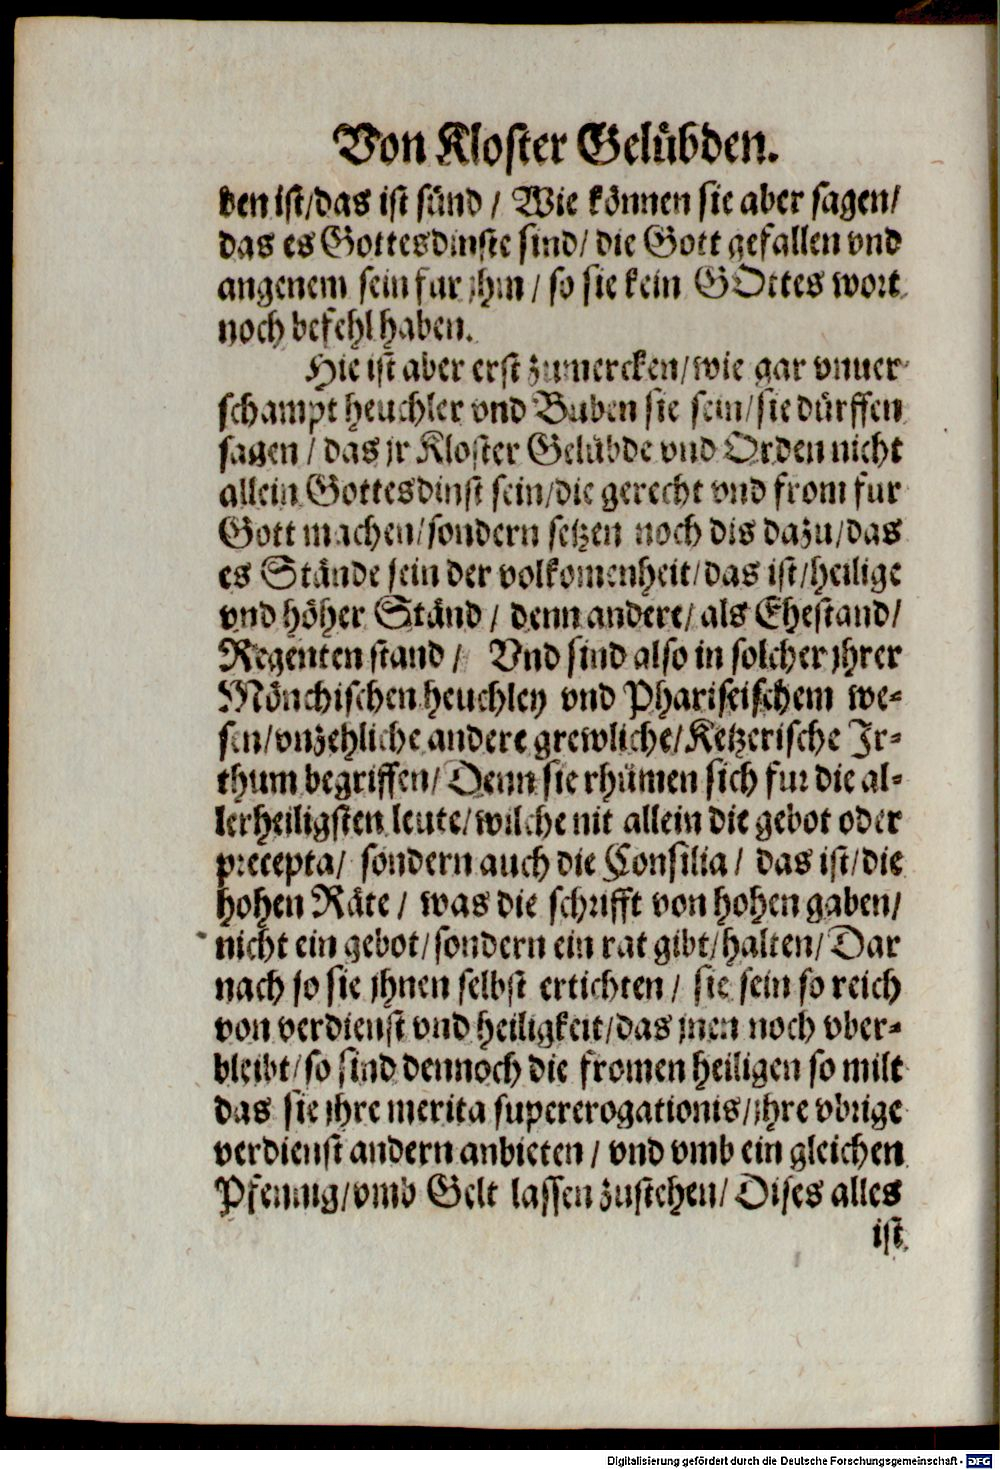 Von Kloster Gelübden.
den ist/das ist sünd / Wie können sie aber sagen/
das es Gottesdinste sind/ die Gott gefallen vnd
angenem sein fur jhm / so sie kein GOttes wort
noch befehl haben.
Hie ist aber erst zumercken/wie gar vnuer
schampt heuchler vnd Buben sie sein/sie dürffen
sagen / das jr Kloster Gelübde vnd Orden nicht
allein Gottesdinst sein/die gerecht vnd from fur
Gott machen/sondern setzen noch dis dazu/das
es Stände sein der volkomenheit/das ist/heilige
vnd höher Ständ / denn andere/ als Ehestand/
Regenten stand / Vnd sind also in solcher jhrer
Mönchischen heuchley vnd Phariseischem we-
sen/vnzehliche andere grewliche/Ketzerische Jr-
thum begriffen/Denn sie rhümen sich fur die al-
lerheiligsten leute/wilche nit allein die gebot oder
precepta/ sondern auch die Consilia / das ist/die
hohen Räte / was die schrifft von hohen gaben/
nicht ein gebot/sondern ein rat gibt/halten/Dar
nach so sie jhnen selbst ertichten / sie sein so reich
von verdienst vnd heiligkeit/das jnen noch vber-
bleibt/so sind dennoch die fromen heiligen so milt
das sie jhre merita supererogationis/jhre vbrige
verdienst andern anbieten / vnd vmb ein gleichen
Pfennig/vmb Gelt lassen zustehen/Dises alles
ist
Digitalisierung gefördert durch die Deutsche Forschungsgemeinschaft - DFG